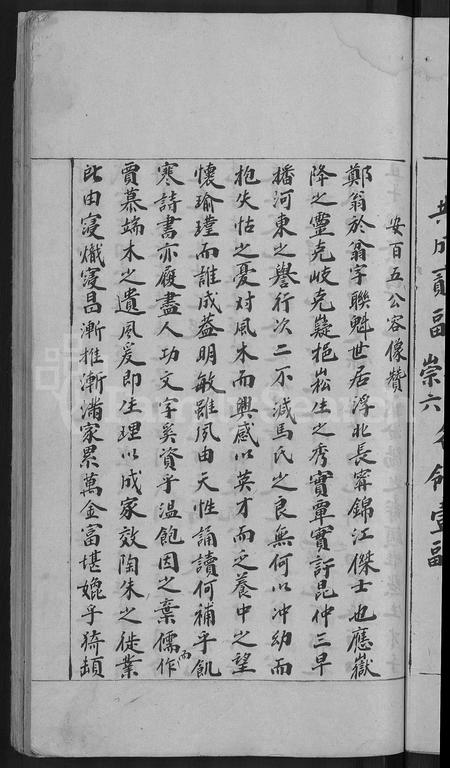 安百五公容像贊
鄭翁於翁字聯魁世居浮北長寧錦江傑士也應嶽
降之靈克岐克嶷挹崧生之秀實覃實訏昆仲三早
播河東之譽行次二不減馬氏之良無何以冲幼而
抱失怙之憂对風木而興感以英才而乏養中之望
懷瑜瑾而誰成益明敏雖夙由天性誦讀何補乎飢
寒詩書亦屐盡人功文字奚資乎溫飽因之棄儒而作
賈慕端木之遺風爰即生理以成家效陶朱之徙業
眦由寖熾寖昌漸推漸滿家累萬金富堪媲乎猗頓
共成貢福崇六名領壹福